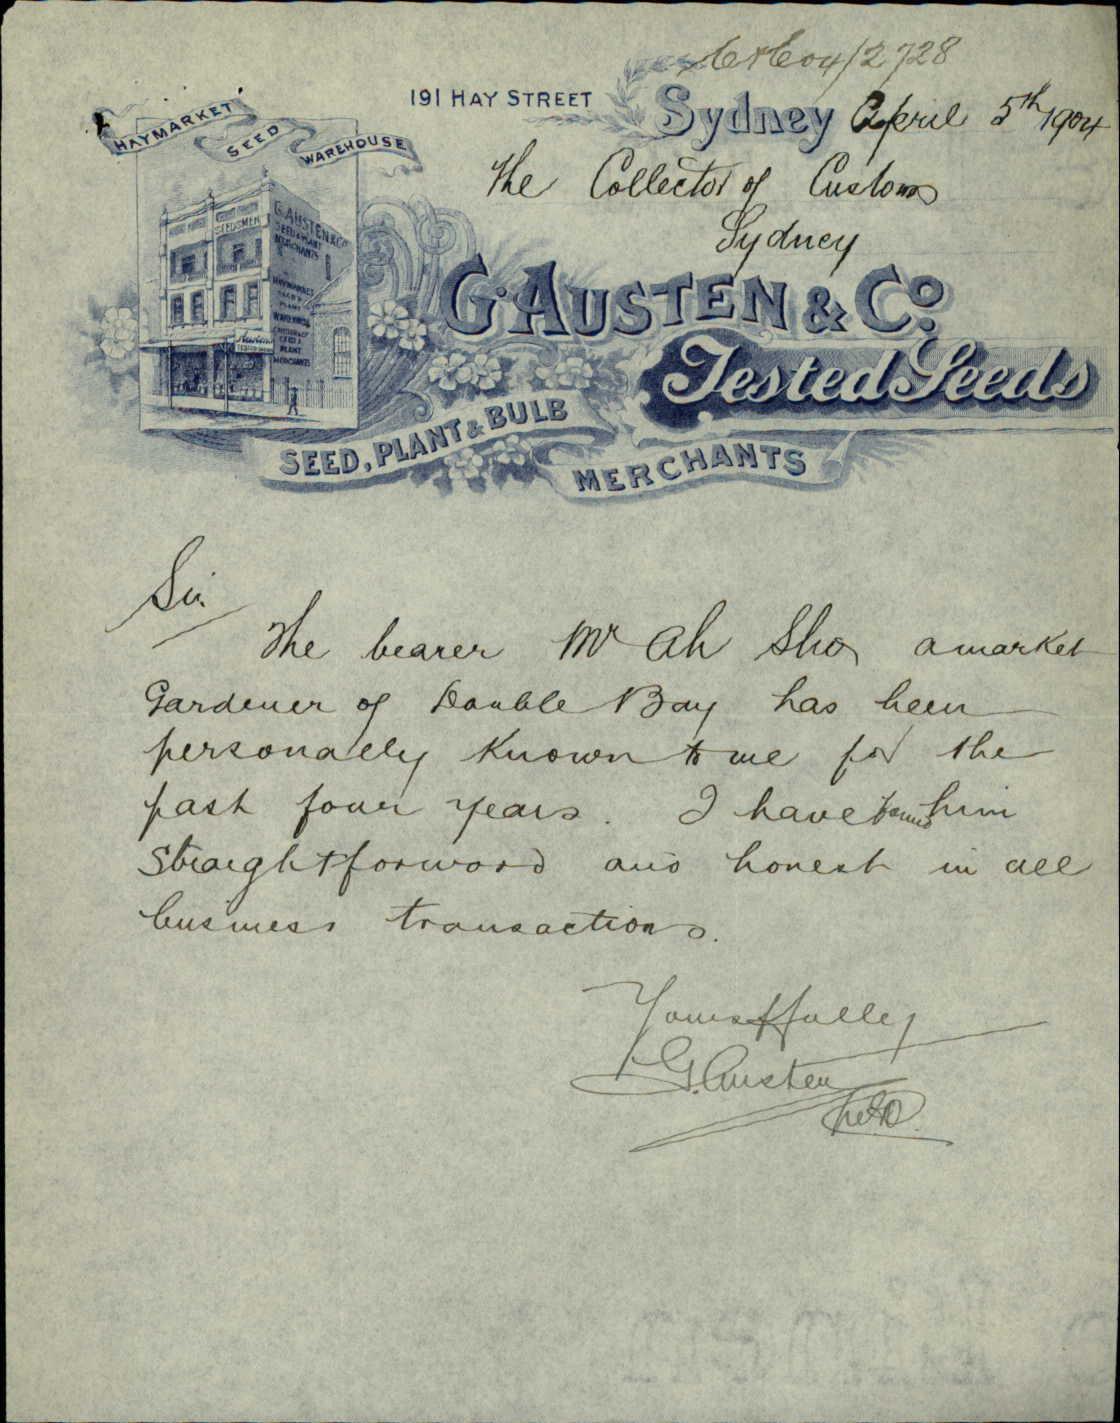 C & C 04/2728
191 HAY STREET
Sydney April 5th 1904
The Collector of Customs
Sydney
HAYMARKET SEED WAREHOUSE
G. AUSTEN & CO.
SEEDSMEN
G. AUSTEN & CO
SEED & PLANT
MERCHANTS
HAYMARKET
WAREHOUSE
PLANT
MERCHANTS
Tested Seeds
SEED, PLANT & BULB
MERCHANTS
Sir
The bearer Mr Ah Sho, a market
Gardener of Double Bay has been
personally known to me for the
past four years. I have found him
straightforward and honest in all
business transactions.
Yours ffully
G. Austen